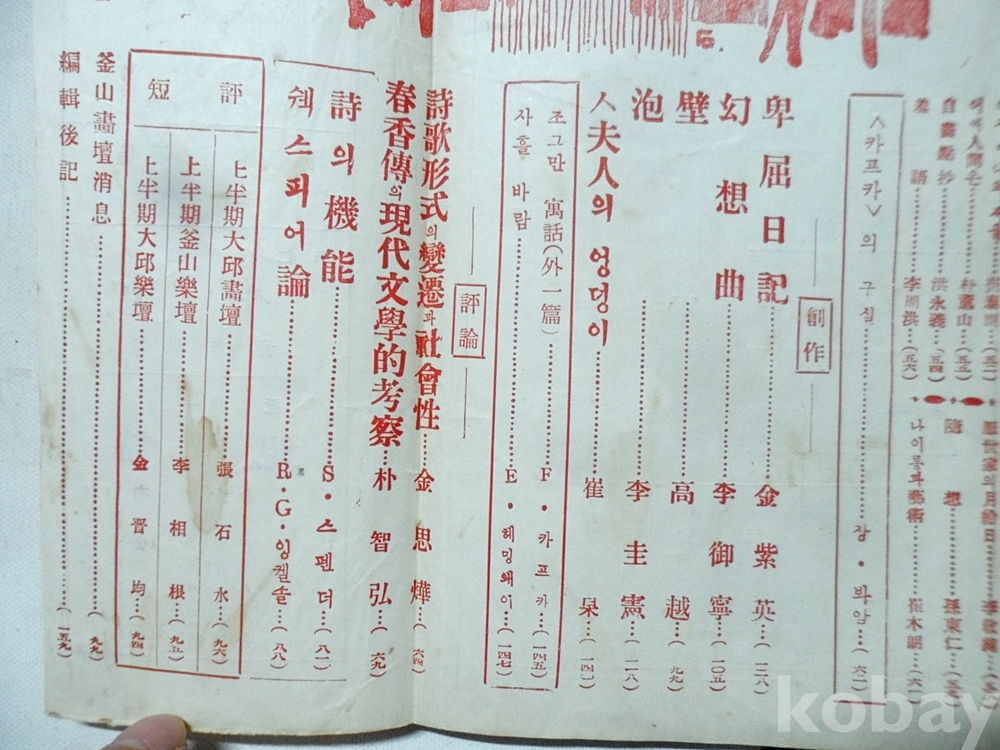 羞語……李周洪…(五六)
自畵點抄……洪永義…(五四)
朴薰山…(五三)
隨想……孫東仁
나이롱과藝術……崔木朗…(六一)
<카프카>의 구실……장・봐암…(六二)
創作
卑屈日記……金紫英…(一三八)
幻想曲……李御寧…(一〇五)
壁……高越…(九九)
泡……李圭憲…(一一八)
人夫人의 엉덩이……崔杲…(一四一)
조그만 寓話(外一篇)……F・카프카…(一四五)
사흘 바람……E・헤밍왜이…(一四七)
評論
詩歌形式의變遷과社會性……金思燁…(六四)
春香傳의現代文學的考察…朴智弘…(六九)
詩의機能……S・스펜더…(八一)
쉑스피어論……R・G・잉켈솔…(八八)
短評
上半期大邱畵壇……張石水…(九六)
上半期釜山樂壇……李相根…(九五)
上半期大邱樂壇……金晋均…(九四)
釜山畵壇消息……(九九)
編輯後記……(一五九)
kobay